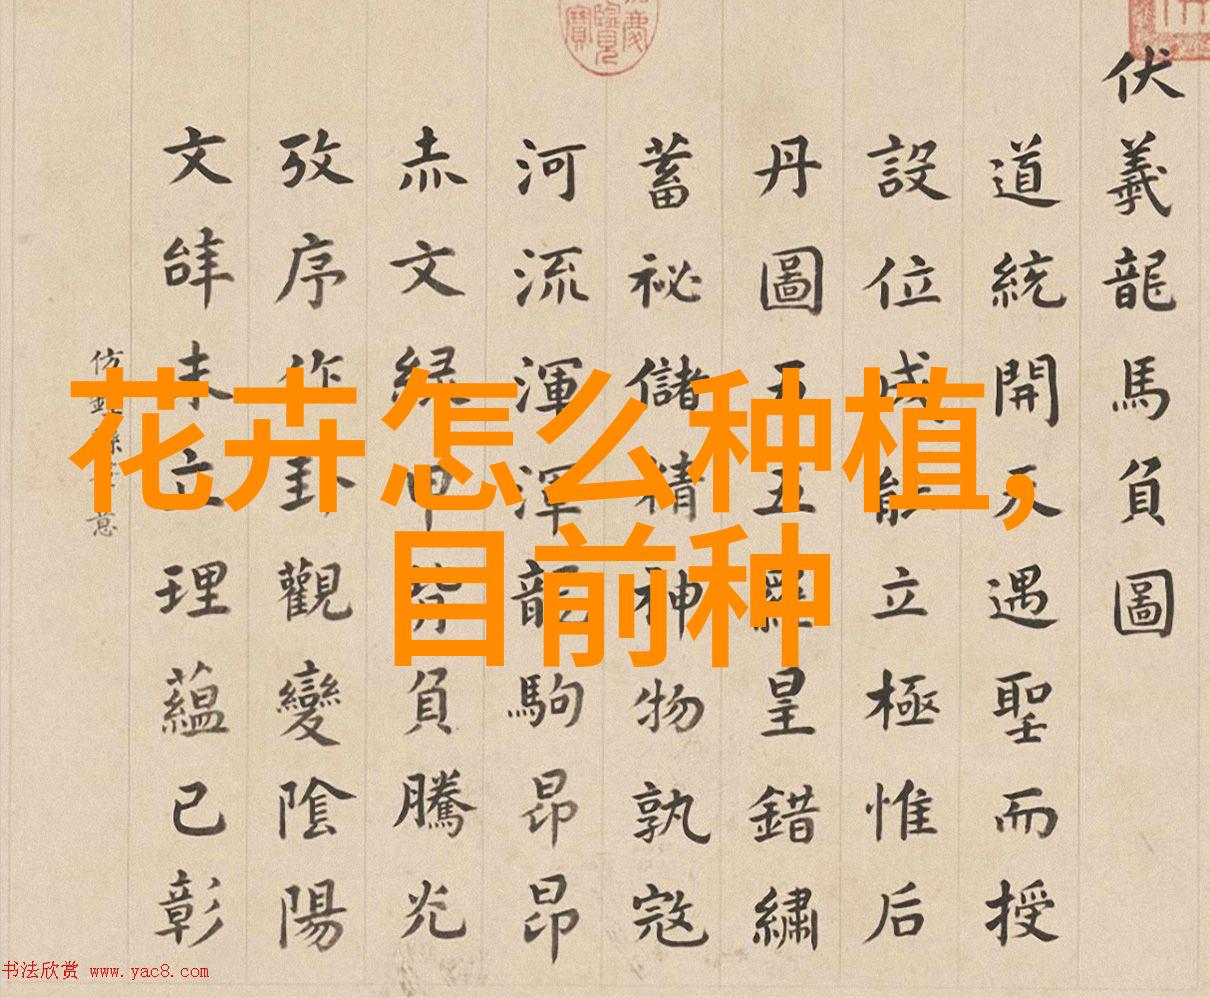 伏羲龍馬負圖
道統開天遇聖而授
設位成能立極惟后
丹圖五五羅皇錯繡
蓄祕儲精神物孰寇
河流渾渾龍駒昂昂
赤文緑甲負騰光
攷序作卦觀變陰陽
文辝未立理蘊已彰
花卉怎么种植,
目前种
书法欣赏 www.yac8.com